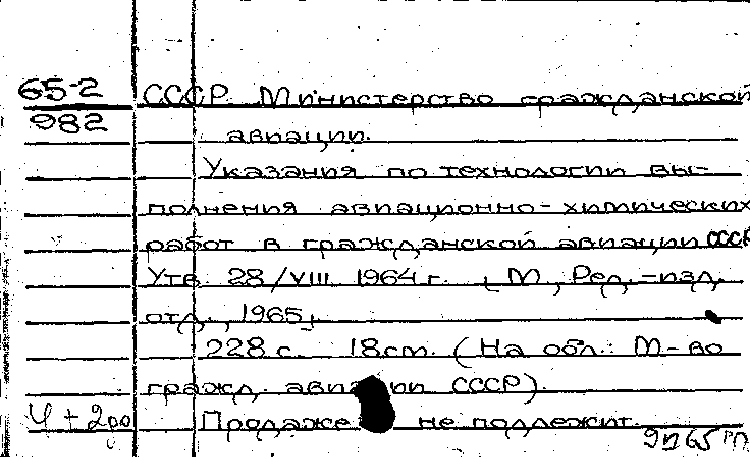 65-2
982
СССР. Министерство гражданской
авиации.
Указания по технологии вы-
полнения авиационно-химических
работ в гражданской авиации СССР
Утв. 28/VIII 1964 г. [М., Ред.-изд.
отд., 1965]
228 с. 18 см. (На обл.: М-во
гражд. авиации СССР).
Продаже не подлежит.